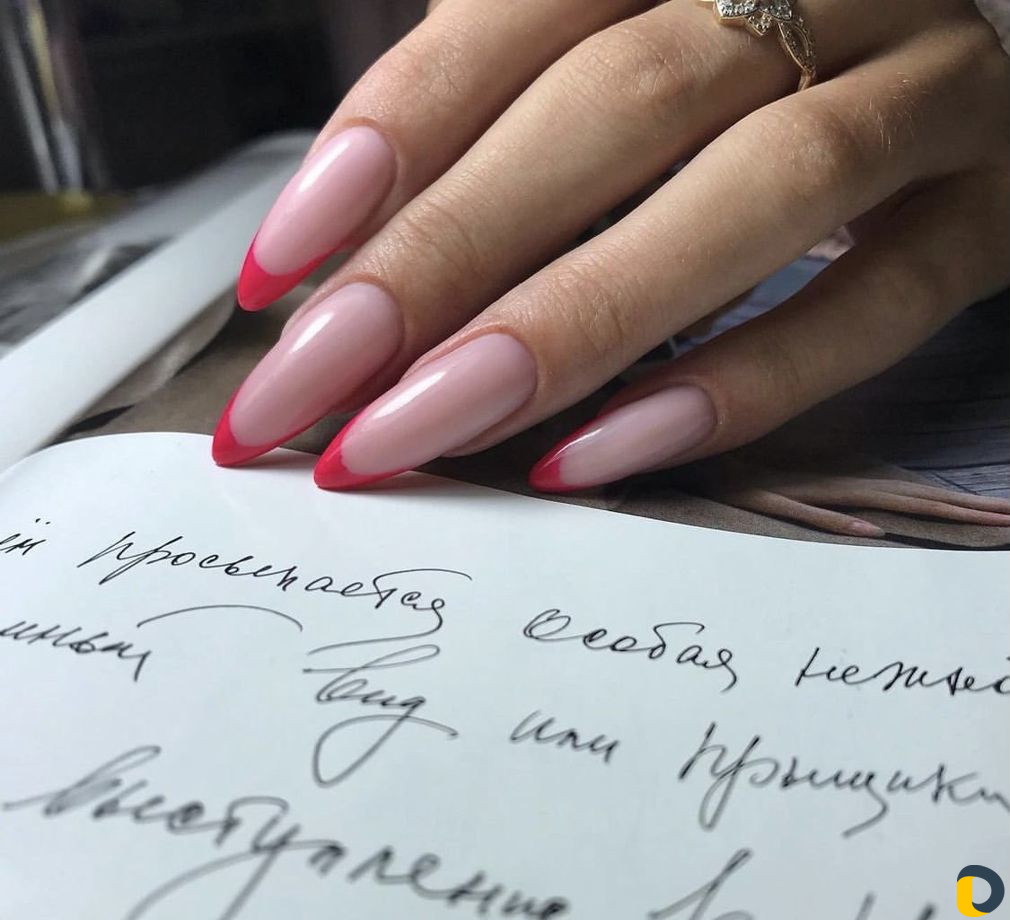 просыпается особая нежно
вид или прыщики
выступление в